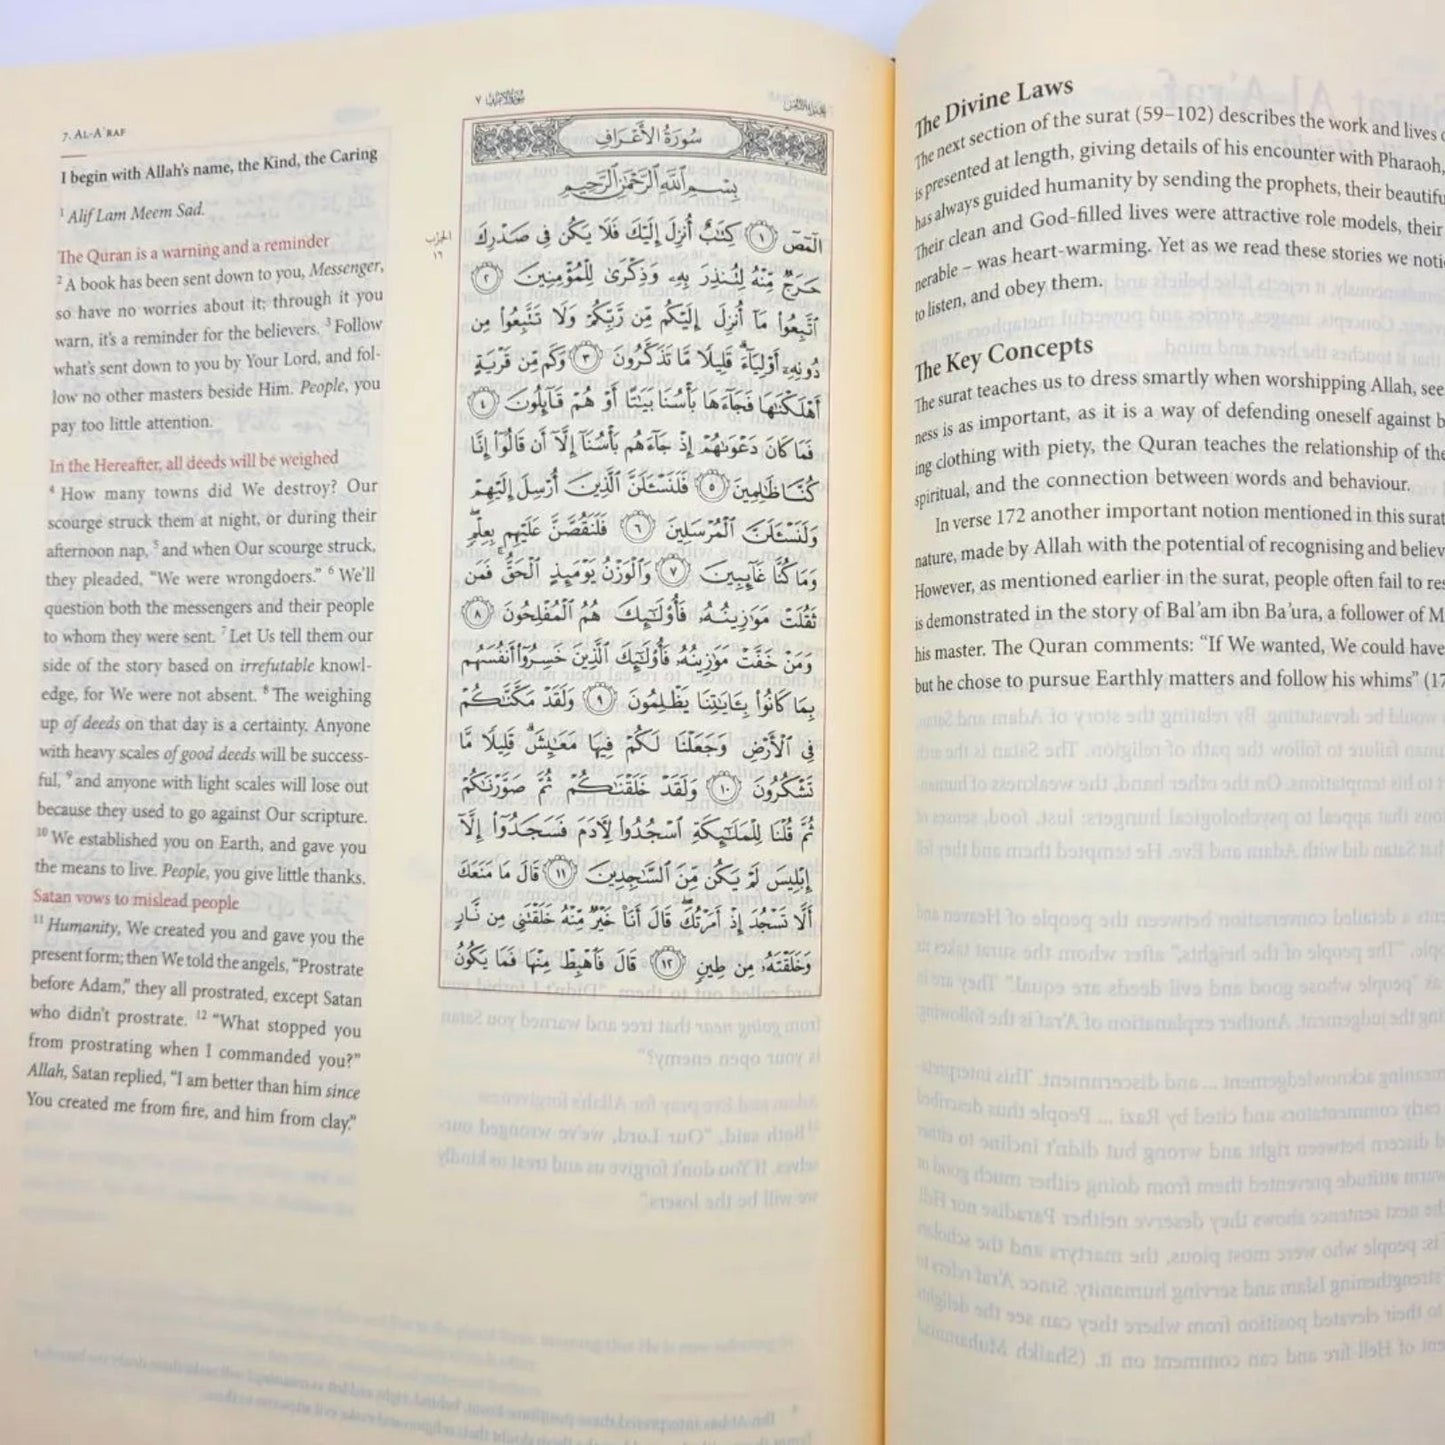 7. AL-A`RAF
I begin with Allah's name, the Kind, the Caring
1 Alif Lam Meem Sad.
The Quran is a warning and a reminder
2 A book has been sent down to you, Messenger,
so have no worries about it; through it you
warn, it's a reminder for the believers. 3 Follow
what's sent down to you by Your Lord, and fol-
low no other masters beside Him. People, you
pay too little attention.
In the Hereafter, all deeds will be weighed
4 How many towns did We destroy? Our
scourge struck them at night, or during their
afternoon nap, 5 and when Our scourge struck,
they pleaded, “We were wrongdoers.” 6 We'll
question both the messengers and their people
to whom they were sent. 7 Let Us tell them our
side of the story based on irrefutable knowl-
edge, for We were not absent. 8 The weighing
up of deeds on that day is a certainty. Anyone
with heavy scales of good deeds will be success-
ful, 9 and anyone with light scales will lose out
because they used to go against Our scripture.
10 We established you on Earth, and gave you
the means to live. People, you give little thanks.
Satan vows to mislead people
11 Humanity, We created you and gave you the
present form; then We told the angels, “Prostrate
before Adam,” they all prostrated, except Satan
who didn't prostrate. 12 “What stopped you
from prostrating when I commanded you?”
Allah, Satan replied, “I am better than him since
You created me from fire, and him from clay.”
سُورَةُ الأَعۡرَافِ ٧
سُورَةُ الأَعۡرَافِ
بِسۡمِ ٱللَّهِ ٱلرَّحۡمَٰنِ ٱلرَّحِيمِ
الحزب
١٦
الٓمٓصٓ ١ كِتَٰبٌ أُنزِلَ إِلَيۡكَ فَلَا يَكُن فِي صَدۡرِكَ
حَرَجٞ مِّنۡهُ لِتُنذِرَ بِهِۦ وَذِكۡرَىٰ لِلۡمُؤۡمِنِينَ ٢
ٱتَّبِعُواْ مَآ أُنزِلَ إِلَيۡكُم مِّن رَّبِّكُمۡ وَلَا تَتَّبِعُواْ مِن
دُونِهِۦٓ أَوۡلِيَآءَۗ قَلِيلٗا مَّا تَذَكَّرُونَ ٣ وَكَم مِّن قَرۡيَةٍ
أَهۡلَكۡنَٰهَا فَجَآءَهَا بَأۡسُنَا بَيَٰتًا أَوۡ هُمۡ قَآئِلُونَ ٤
فَمَا كَانَ دَعۡوَىٰهُمۡ إِذۡ جَآءَهُم بَأۡسُنَآ إِلَّآ أَن قَالُوٓاْ إِنَّا
كُنَّا ظَٰلِمِينَ ٥ فَلَنَسۡـَٔلَنَّ ٱلَّذِينَ أُرۡسِلَ إِلَيۡهِمۡ
وَلَنَسۡـَٔلَنَّ ٱلۡمُرۡسَلِينَ ٦ فَلَنَقُصَّنَّ عَلَيۡهِم بِعِلۡمٖۖ
وَمَا كُنَّا غَآئِبِينَ ٧ وَٱلۡوَزۡنُ يَوۡمَئِذٍ ٱلۡحَقُّۚ فَمَن
ثَقُلَتۡ مَوَٰزِينُهُۥ فَأُوْلَٰٓئِكَ هُمُ ٱلۡمُفۡلِحُونَ ٨
وَمَنۡ خَفَّتۡ مَوَٰزِينُهُۥ فَأُوْلَٰٓئِكَ ٱلَّذِينَ خَسِرُوٓاْ أَنفُسَهُم
بِمَا كَانُواْ بِـَٔايَٰتِنَا يَظۡلِمُونَ ٩ وَلَقَدۡ مَكَّنَّٰكُمۡ
فِي ٱلۡأَرۡضِ وَجَعَلۡنَا لَكُمۡ فِيهَا مَعَٰيِشَۗ قَلِيلٗا مَّا
تَشۡكُرُونَ ١٠ وَلَقَدۡ خَلَقۡنَٰكُمۡ ثُمَّ صَوَّرۡنَٰكُمۡ
ثُمَّ قُلۡنَا لِلۡمَلَٰٓئِكَةِ ٱسۡجُدُواْ لِأٓدَمَ فَسَجَدُوٓاْ إِلَّآ
إِبۡلِيسَ لَمۡ يَكُن مِّنَ ٱلسَّٰجِدِينَ ١١ قَالَ مَا مَنَعَكَ
أَلَّا تَسۡجُدَ إِذۡ أَمَرۡتُكَۖ قَالَ أَنَا۠ خَيۡرٞ مِّنۡهُ خَلَقۡتَنِي مِن نَّارٖ
وَخَلَقۡتَهُۥ مِن طِينٖ ١٢ قَالَ فَٱهۡبِطۡ مِنۡهَا فَمَا يَكُونُ
The Divine Laws
The next section of the surat (59–102) describes the work and lives
is presented at length, giving details of his encounter with Pharaoh,
has always guided humanity by sending the prophets, their beautiful
Their clean and God-filled lives were attractive role models, their
nerable – was heart-warming. Yet as we read these stories we
to listen, and obey them.
The Key Concepts
The surat teaches us to dress smartly when worshipping Allah, see
ness is as important, as it is a way of defending oneself against
ing clothing with piety, the Quran teaches the relationship of the
spiritual, and the connection between words and behaviour.
In verse 172 another important notion mentioned in this surat
nature, made by Allah with the potential of recognising and
However, as mentioned earlier in the surat, people often fail to
is demonstrated in the story of Bal'am ibn Ba'ura, a follower of M
his master. The Quran comments: “If We wanted, We could have
but he chose to pursue Earthly matters and follow his whims” (17